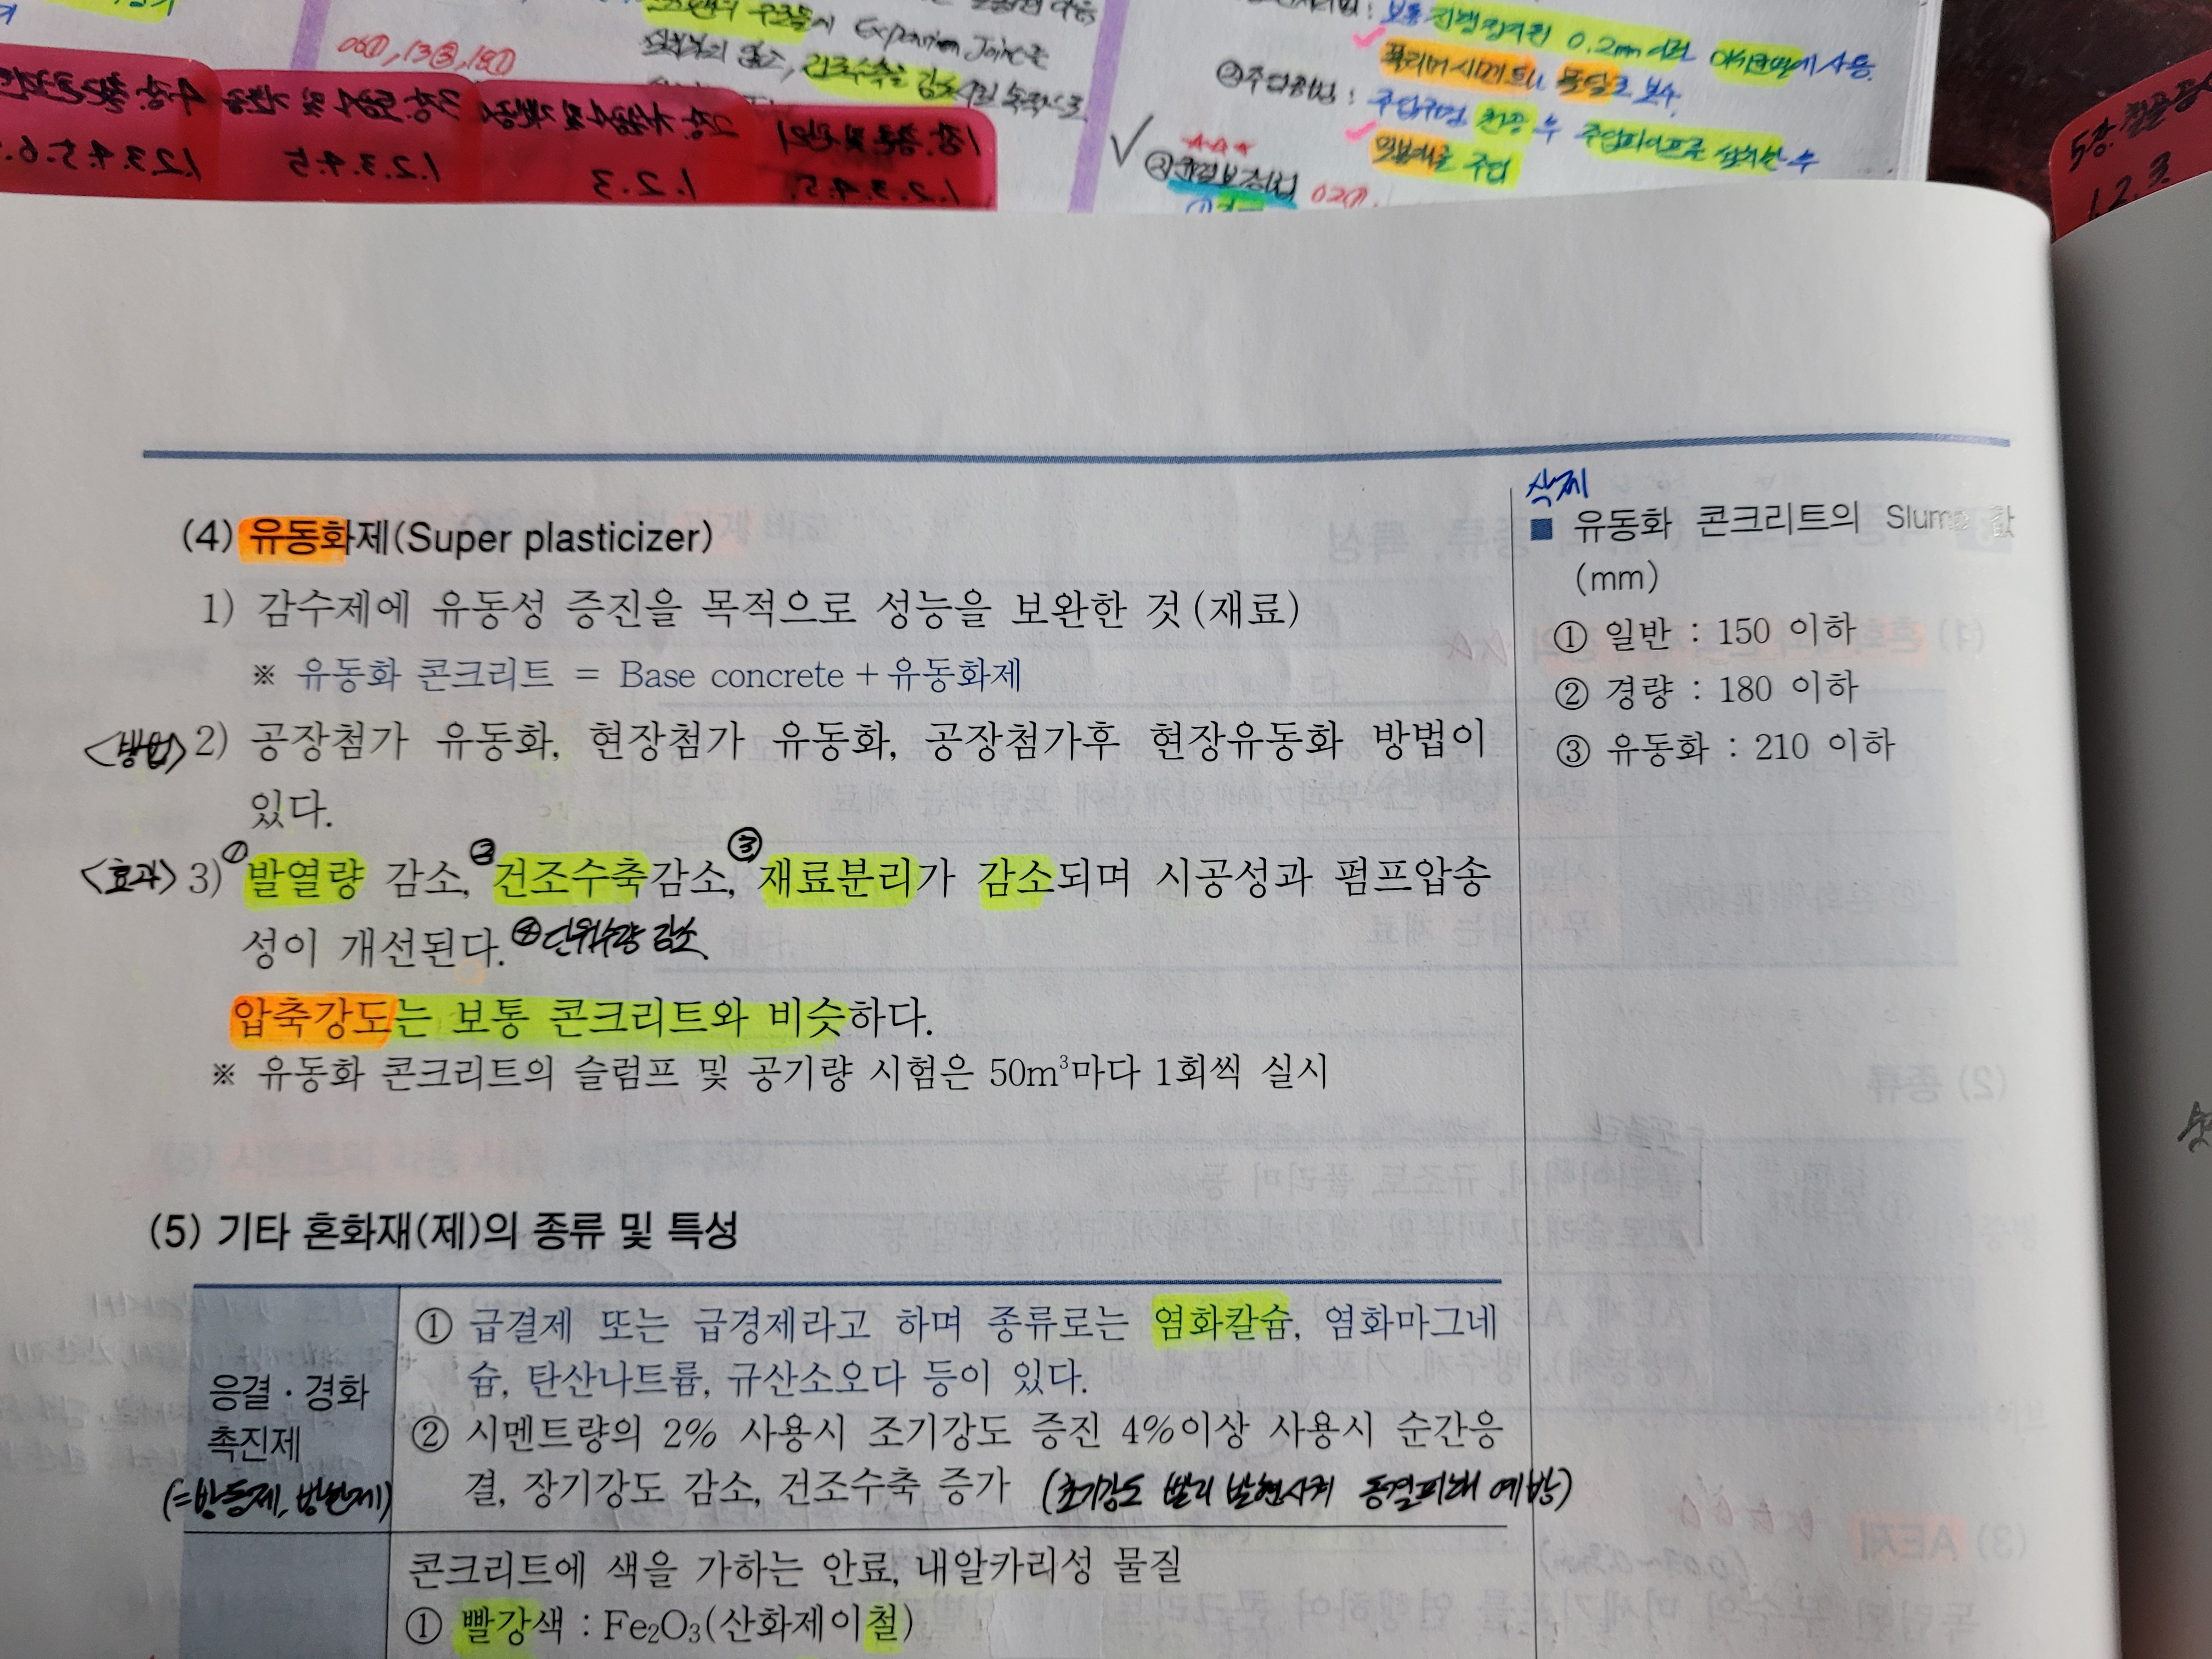 06①, 13③, 18①
Expansion Joint
건조수축을 감소
0.2mm
폴리머시멘트나 몰탈로 보수
②주입공법 : 주입구멍 천공 후 주입파이프를 설치한 후
주입
02①
1. 2. 3. 4. 5.
1. 2. 3
1. 2. 3. 4. 5
1. 2. 3.
삭제
(4) 유동화제(Super plasticizer)
1) 감수제에 유동성 증진을 목적으로 성능을 보완한 것(재료)
※ 유동화 콘크리트 = Base concrete + 유동화제
<방법> 2) 공장첨가 유동화, 현장첨가 유동화, 공장첨가후 현장유동화 방법이
있다.
<효과> 3) ①발열량 감소, ②건조수축감소, ③재료분리가 감소되며 시공성과 펌프압송
성이 개선된다. ④단위수량 감소
압축강도는 보통 콘크리트와 비슷하다.
※ 유동화 콘크리트의 슬럼프 및 공기량 시험은 50m³마다 1회씩 실시
■ 유동화 콘크리트의 Slump 값
(mm)
① 일반 : 150 이하
② 경량 : 180 이하
③ 유동화 : 210 이하
(5) 기타 혼화재(제)의 종류 및 특성
응결 · 경화
촉진제
(=방동제, 방한제)
① 급결제 또는 급경제라고 하며 종류로는 염화칼슘, 염화마그네
슘, 탄산나트륨, 규산소오다 등이 있다.
② 시멘트량의 2% 사용시 조기강도 증진 4%이상 사용시 순간응
결, 장기강도 감소, 건조수축 증가 (초기강도 빨리 발현시켜 동결피해 예방)
콘크리트에 색을 가하는 안료, 내알카리성 물질
① 빨강색 : Fe₂O₃(산화제이철)